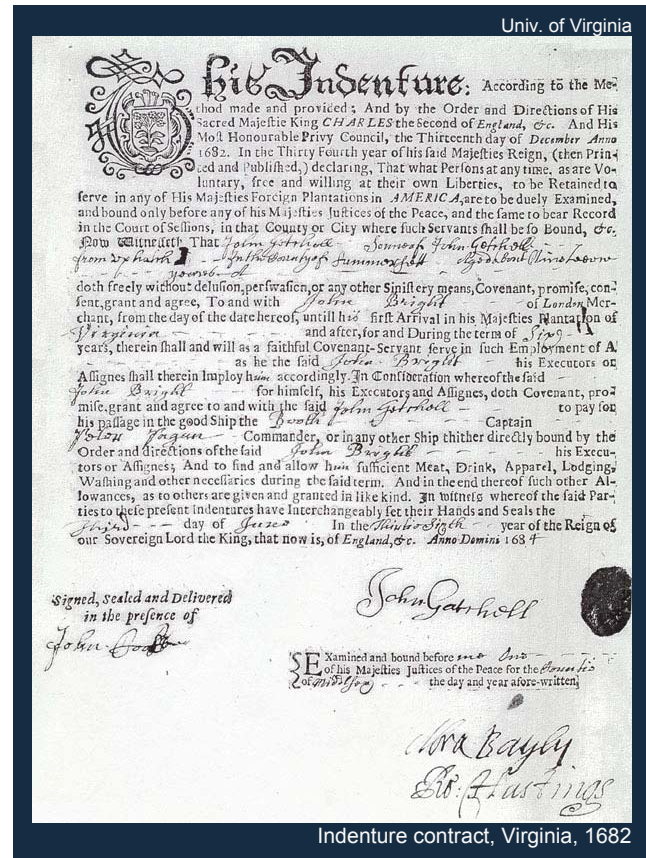 Univ. of Virginia
This Indenture: According to the Me-
thod made and provided; And by the Order and Directions of His
Sacred Majestie King CHARLES the Second of England, &c. And His
Most Honourable Privy Council, the Thirteenth day of December Anno
1682. In the Thirty Fourth year of his said Majesties Reign, (then Prin-
ted and Published,) declaring, That what Persons at any time, as are Vo-
luntary, free and willing at their own Liberties, to be Retained to
serve in any of His Majesties Foreign Plantations in AMERICA, are to be duely Examined,
and bound only before any of his Majesties Justices of the Peace, and the same to bear Record
in the Court of Sessions, in that County or City where such Servants shall be so Bound, &c.
Now Witnesseth That John Gatchell Sonne of John Getchell
from in the County of Summersett Aged about Nineteene
yeares
doth freely without delusion, perswasion, or any other Sinistery means, Covenant, promise, con-
sent, grant and agree, To and with John Bright of London Mer-
chant, from the day of the date hereof, untill his first Arrival in his Majesties Plantation of
Virginia and after, for and During the term of
years, therein shall and will as a faithful Covenant-Servant serve in such Employment of A
as he the said John Bright his Executors or
Assignes shall therein Imploy him accordingly. In Consideration whereof the said
John Bright for himself, his Executors and Assignes, doth Covenant, pro-
mise, grant and agree to and with the said John Getchell to pay for
his passage in the good Ship the Booth Captain
Peter Pagan Commander, or in any other Ship thither directly bound by the
Order and directions of the said John Bright his Execu-
tors or Assignes; And to find and allow him sufficient Meat, Drink, Apparel, Lodging,
Washing and other necessaries during the said term. And in the end thereof such other Al-
lowances, as to others are given and granted in like kind. In witness whereof the said Par-
ties to these present Indentures have Interchangeably set their Hands and Seals the
third day of June In the Thirtie Sixth year of the Reign of
our Sovereign Lord the King, that now is, of England, &c. Anno Domini 1684
Signed, Sealed and Delivered
in the presence of
John
John Gatchell
Examined and bound before me One
of his Majesties Justices of the Peace for the Countie
of Middlsex the day and year afore-written,
Abra Bayly
Ro: Hustings
Indenture contract, Virginia, 1682